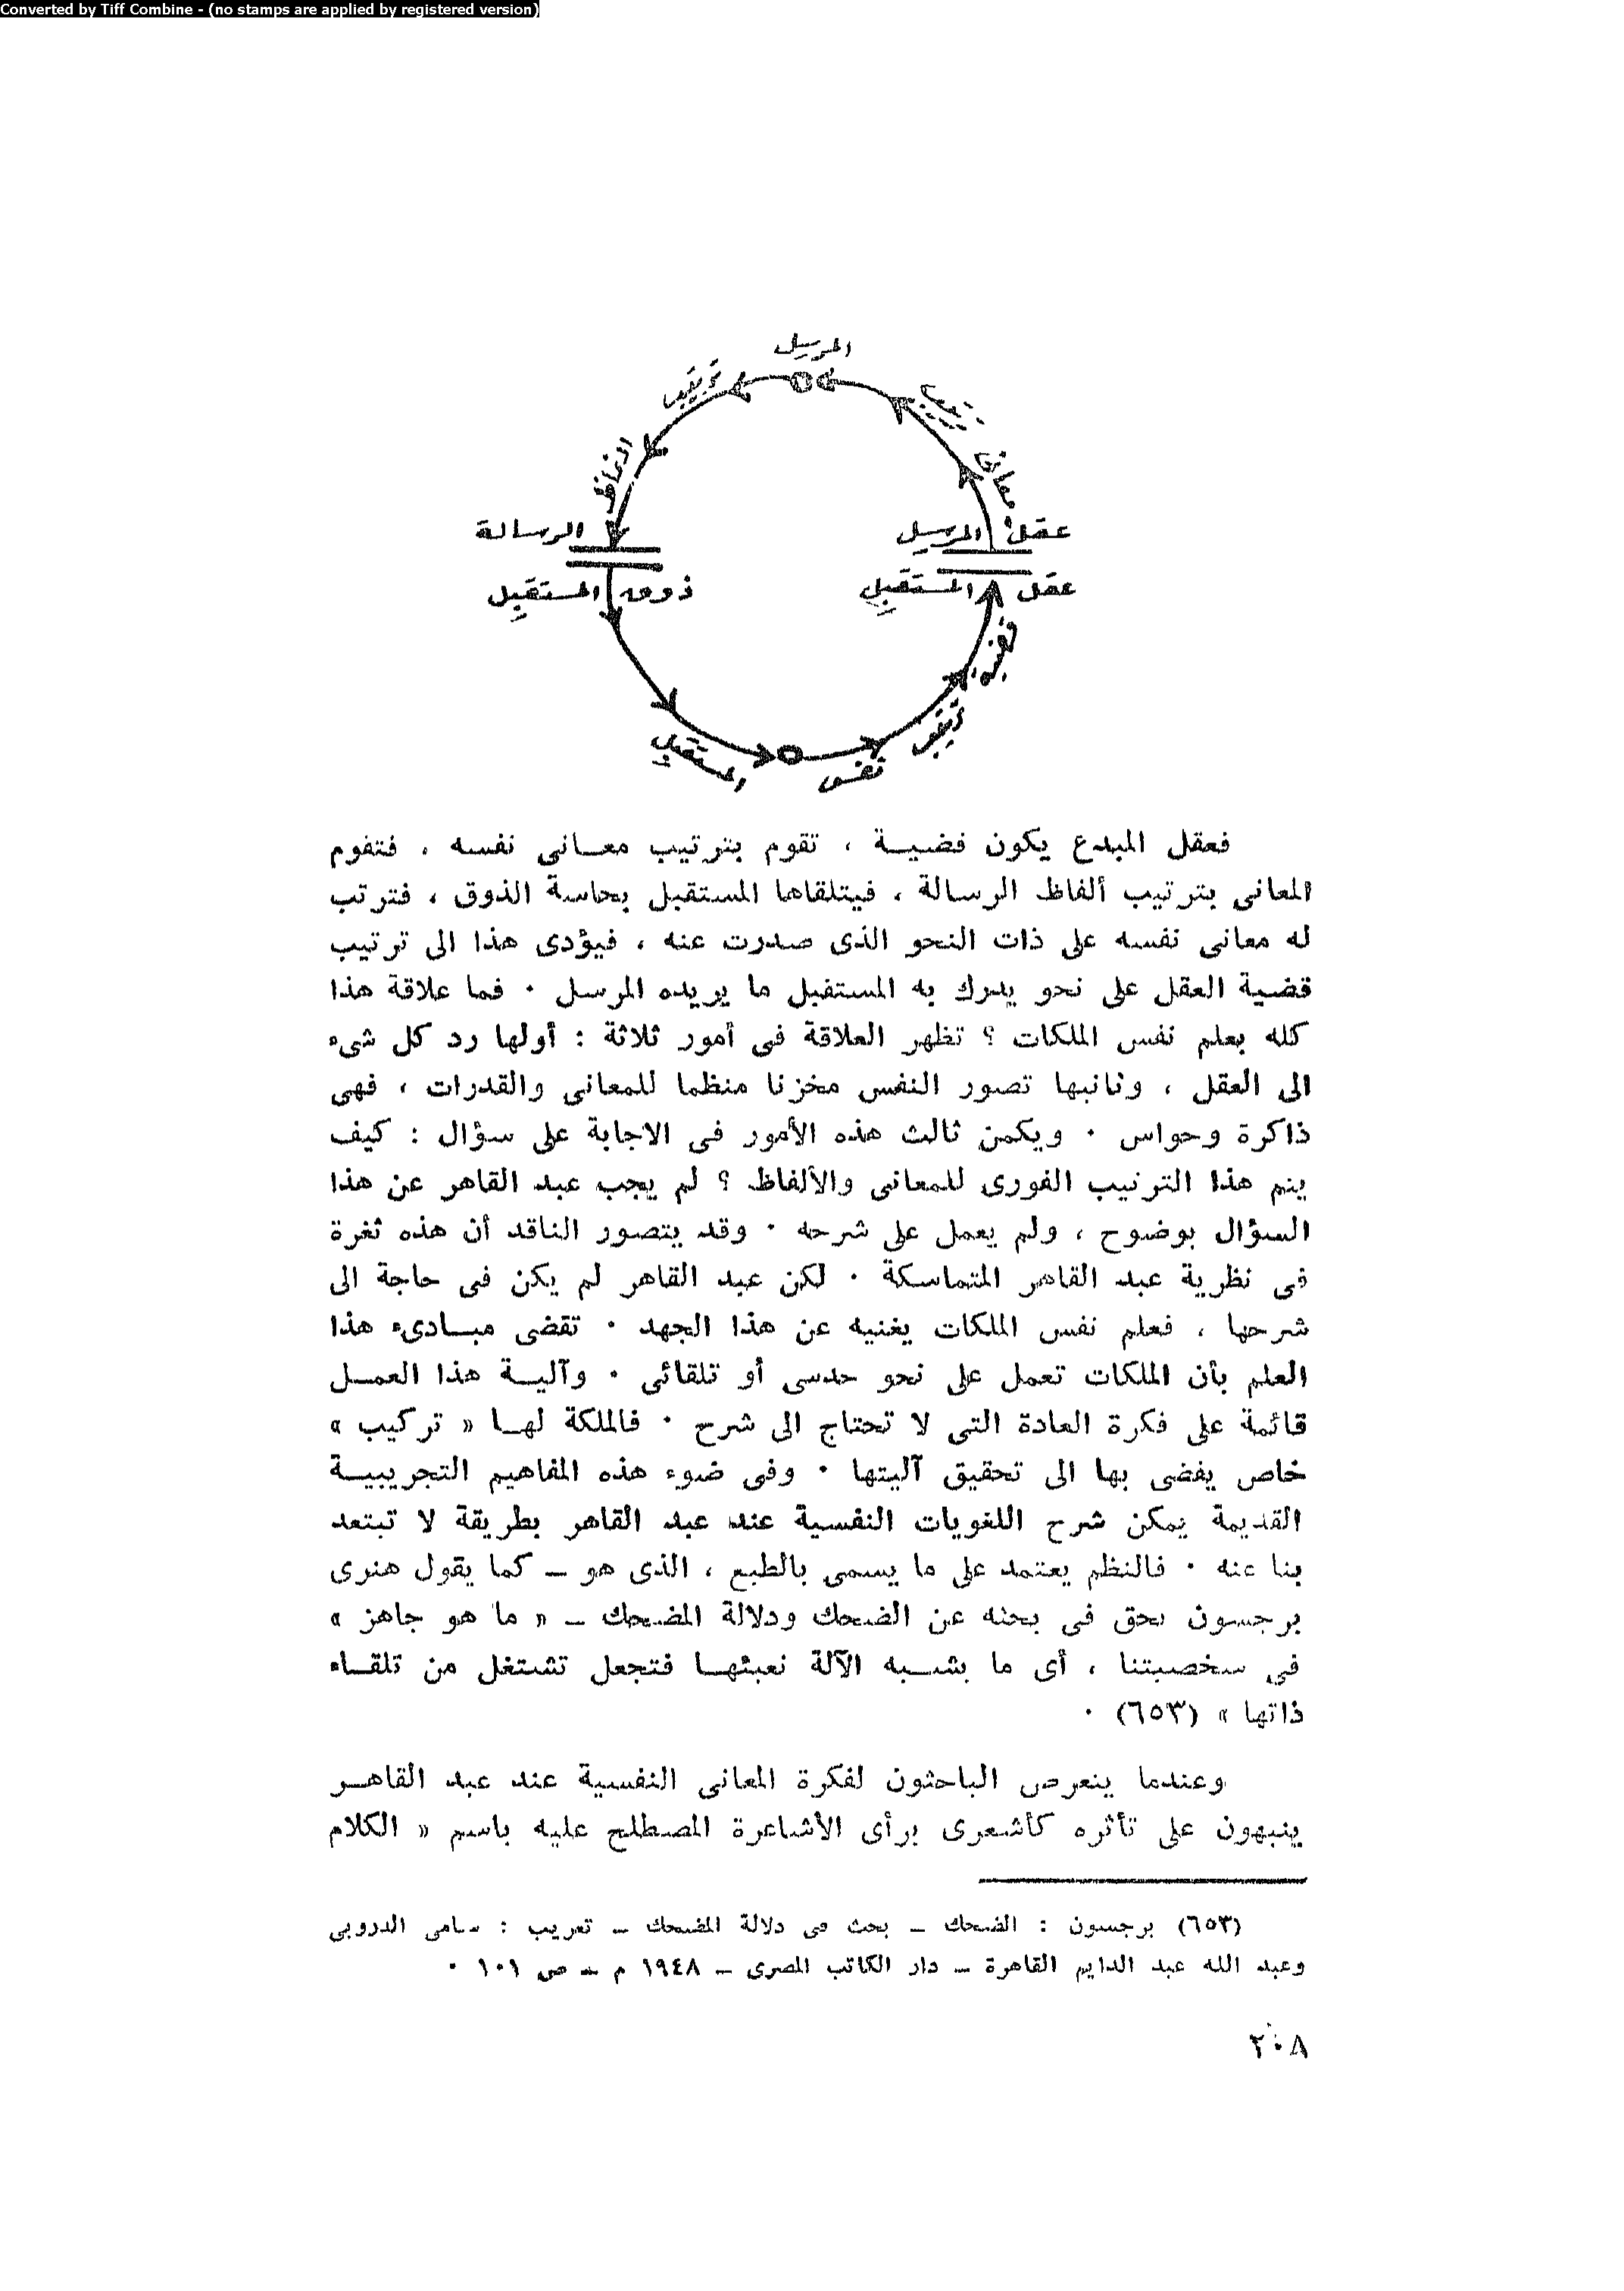 Converted by Tiff Combine - (no stamps are applied by registered version)
المرسل
ترتيب
ترتيب
ألفاظ
معانى
الرسالة
عقل المرسل
ذوق المستقبل
عقل المستقبل
قضية
ترتيب
المستقبل
نفس
فعقل المبدع يكون قضيــة ، تقوم بترتيب معــانى نفسه ، فتقوم
المعانى بترتيب ألفاظ الرسالة ، فيتلقاها المستقبل بحاسة الذوق ، فترتب
له معانى نفسه على ذات النحو الذى صدرت عنه ، فيؤدى هذا الى ترتيب
قضية العقل على نحو يدرك به المستقبل ما يريده المرسل . فما علاقة هذا
كله بعلم نفس الملكات ؟ تظهر العلاقة فى أمور ثلاثة : أولها رد كل شىء
الى العقل ، وثانيها تصور النفس مخزنا منظما للمعانى والقدرات ، فهى
ذاكرة وحواس . ويكمن ثالث هذه الأمور فى الاجابة على سؤال : كيف
يتم هذا الترتيب الفورى للمعانى والألفاظ ؟ لم يجب عبد القاهر عن هذا
السؤال بوضوح ، ولم يعمل على شرحه . وقد يتصور الناقد أن هذه ثغرة
فى نظرية عبد القاهر المتماسكة . لكن عبد القاهر لم يكن فى حاجة الى
شرحها ، فعلم نفس الملكات يغنيه عن هذا الجهد . تقضى مبــادىء هذا
العلم بأن الملكات تعمل على نحو حدسى أو تلقائى . وآليــة هذا العمــل
قائمة على فكرة العادة التى لا تحتاج الى شرح . فالملكة لهــا « تركيب »
خاص يفضى بها الى تحقيق آليتها . وفى ضوء هذه المفاهيم التجريبيــة
القديمة يمكن شرح اللغويات النفسية عند عبد القاهر بطريقة لا تبتعد
بنا عنه . فالنظم يعتمد على ما يسمى بالطبع ، الذى هو – كما يقول هنرى
برجسون بحق فى بحثه عن الضحك ودلالة المضحك – « ما هو جاهز »
فى شخصيتنا ، أى ما يشــبه الآلة نعبئهــا فتجعل تشتغل من تلقــاء
ذاتها » (٦٥٣) .
وعندما يتعرض الباحثون لفكرة المعانى النفسية عند عبد القاهــر
ينبهون على تأثره كأشعرى برأى الأشاعرة المصطلح عليه باسم « الكلام
(٦٥٣) برجسون : الضحك – بحث فى دلالة المضحك – تعريب : سامى الدروبى
وعبد الله عبد الدايم القاهرة – دار الكاتب المصرى – ١٩٤٨ م – ص ١٠١ .
٢٠٨